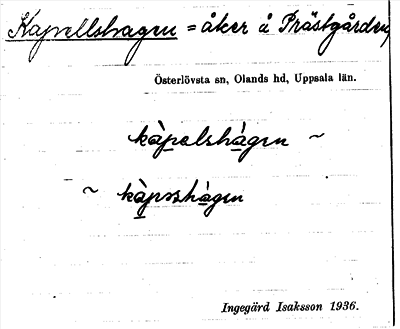 Kapellshagen = åker å Prästgården,
Österlövsta sn, Olands hd, Uppsala län.
kàpalshàgɛn ~
~ kàpɔshàgɛn
Ingegärd Isaksson 1936.